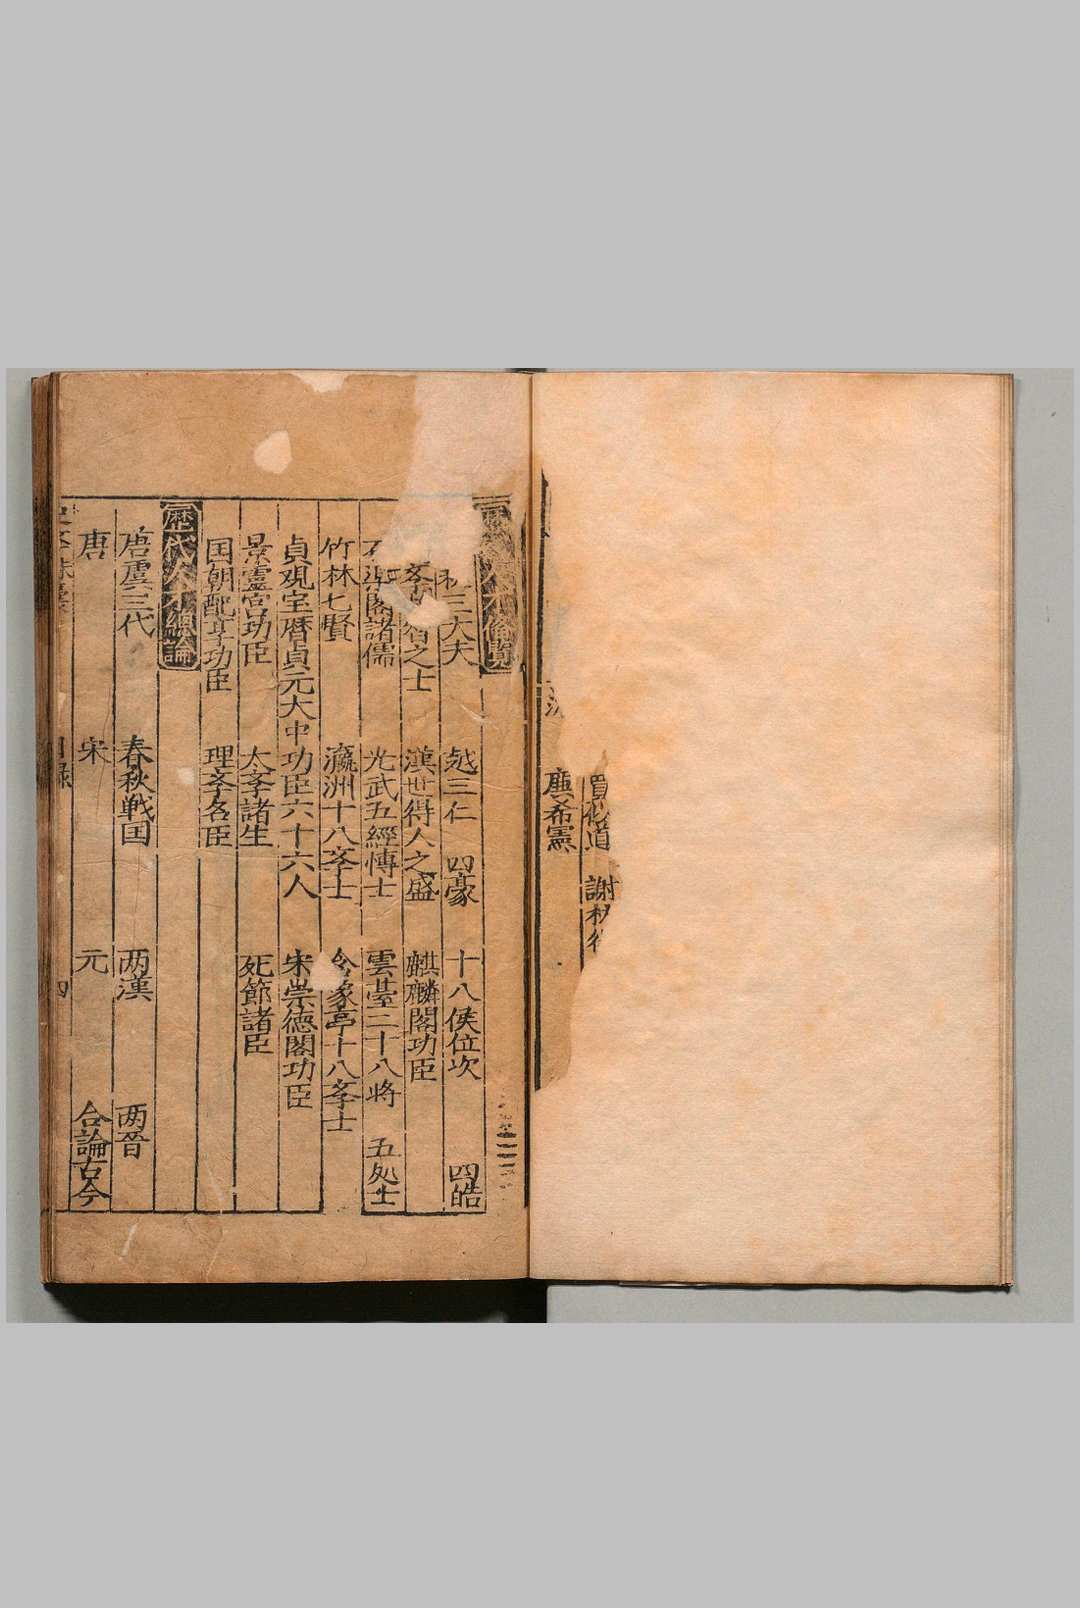 賈似道　謝枋得
廉希憲
歷代人才備覽
三大夫　越三仁　四豪　十八侯位次　四皓
之士　漢世得人之盛　麒麟閣功臣
石渠閣諸儒　光武五經愽士　雲䑓二十八将　五处士
竹林七賢　瀛洲十八斈士　令象亭十八斈士
貞观宝暦貞元大中功臣六十六人　宋崇德閣功臣
景靈宮功臣　太斈諸生　死節諸臣
囯朝配享功臣　理斈名臣
歷代人才緫論
唐虞三代　春秋戦囯　两漢　两晉
唐　宋　元　合論古今
目録　四